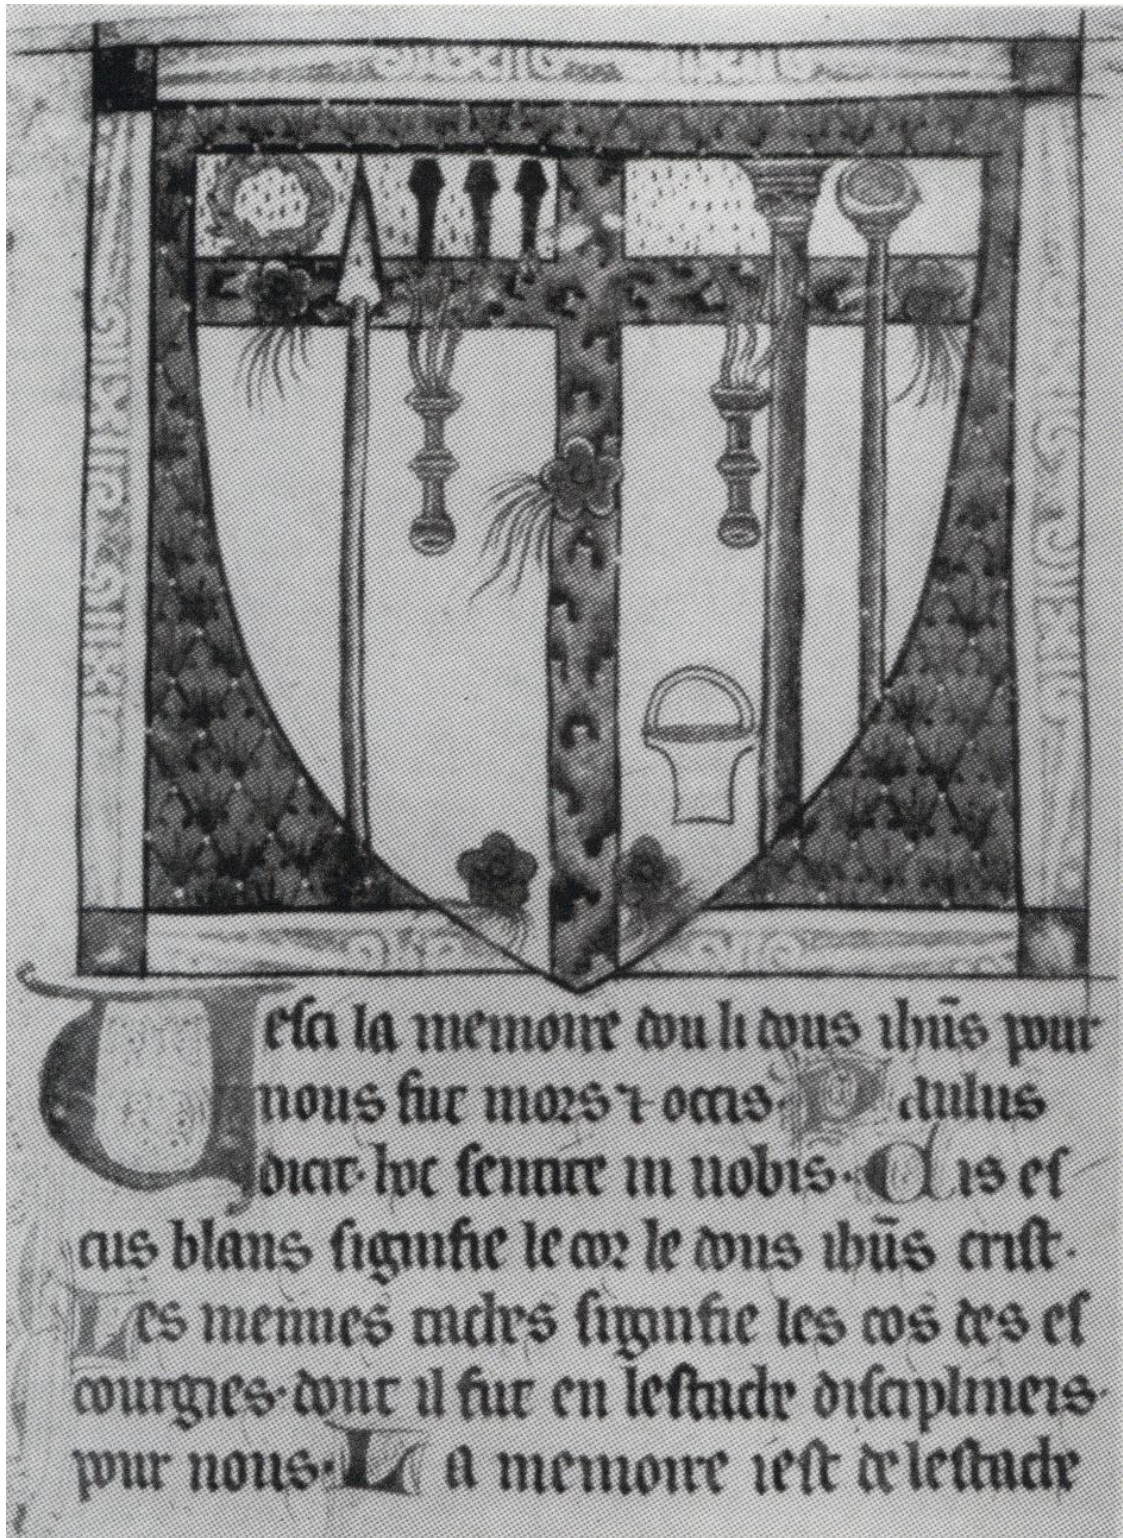 Vesci la memoire dou li dous ihūs pour
nous fut mors ⁊ occis. Paulus
dicit. hoc sentite in uobis. Cis es
cus blans signifie le cor le dous ihūs crist.
Les menues taches signifie les cos des es
courgies. dont il fut en lestache disciplineis.
pour nous. La memoire iest de lestache